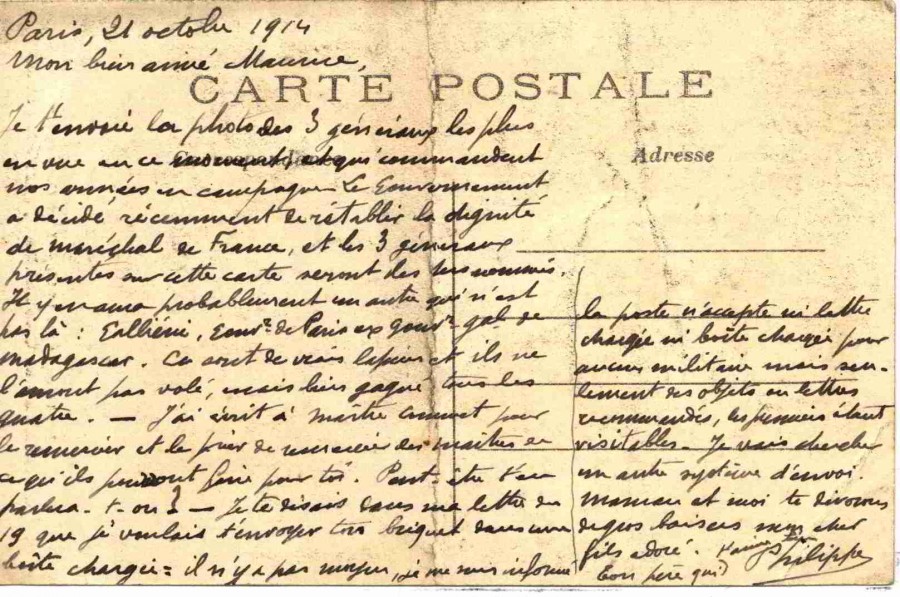 Paris, 21 octobre 1914
Mon bien aimé Maurice,
CARTE POSTALE
Je t'envoie la photo des 3 généraux les plus
en vue en ce moment, et qui commandent
Adresse
nos armées en campagne. Le Gouvernement
a décidé récemment de rétablir la dignité
de maréchal de France, et les 3 généraux
présentés sur cette carte seront des 1ers nommés.
Il y en aura probablement un autre qui n'est
pas là : Galliéni, gouvr. de Paris ex gouvr. gal. de
Madagascar. Ce sont de vrais lapins et ils ne
l'auront pas volé, mais bien gagné tous les
quatre. — J'ai écrit à maître pour
le remercier et le prier de remercier des maîtres en
ce qu'ils pourront faire pour toi. Peut-être t'en
parlera-t-on ? — Je te disais dans ma lettre du
19 que je voulais t'envoyer ton briquet dans une
boîte chargée = il n'y a pas moyen, je me suis informé
la poste n'accepte ni lettre
chargée ni boîte chargée pour
aucun militaire mais seu-
lement des objets ou lettres
recommandés, les premiers étant
visitables. Je vais chercher
un autre système d'envoi.
Maman et moi te dévorons
de gros baisers mon cher
fils adoré.
Ton père qui t'aime
Philippe